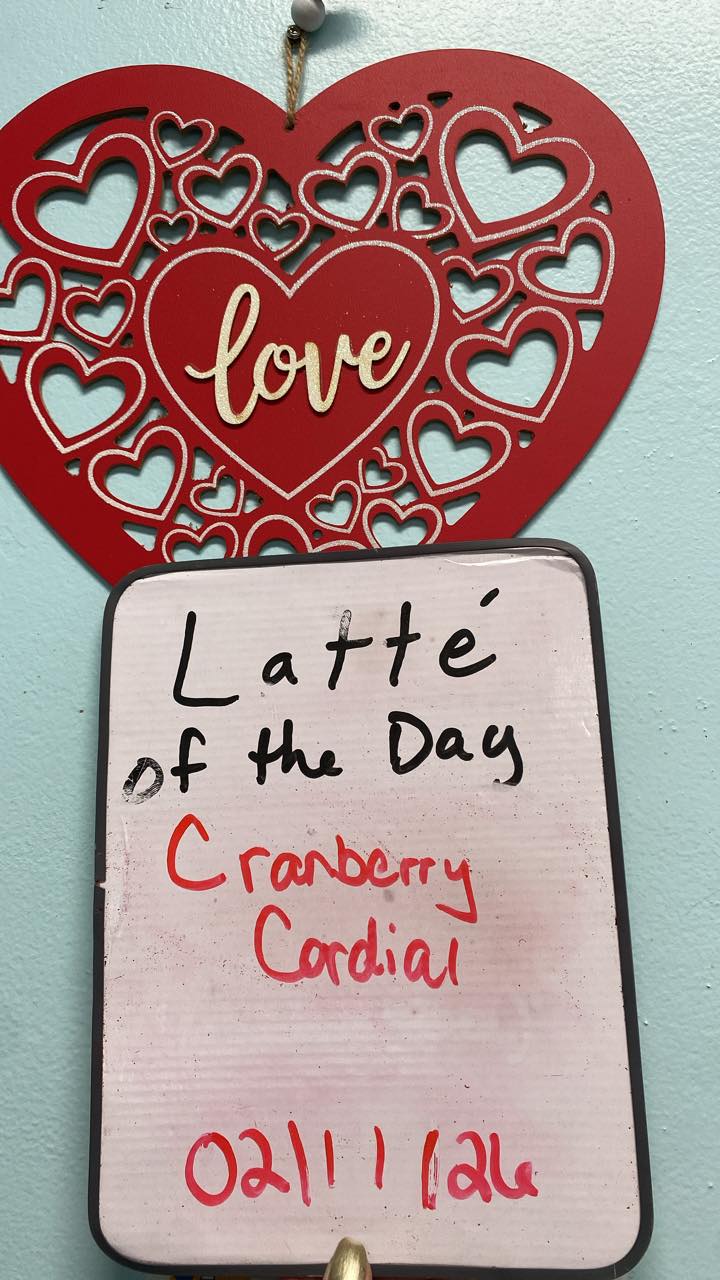 love
Latté
of the Day
Cranberry
Cordial
02/11/26